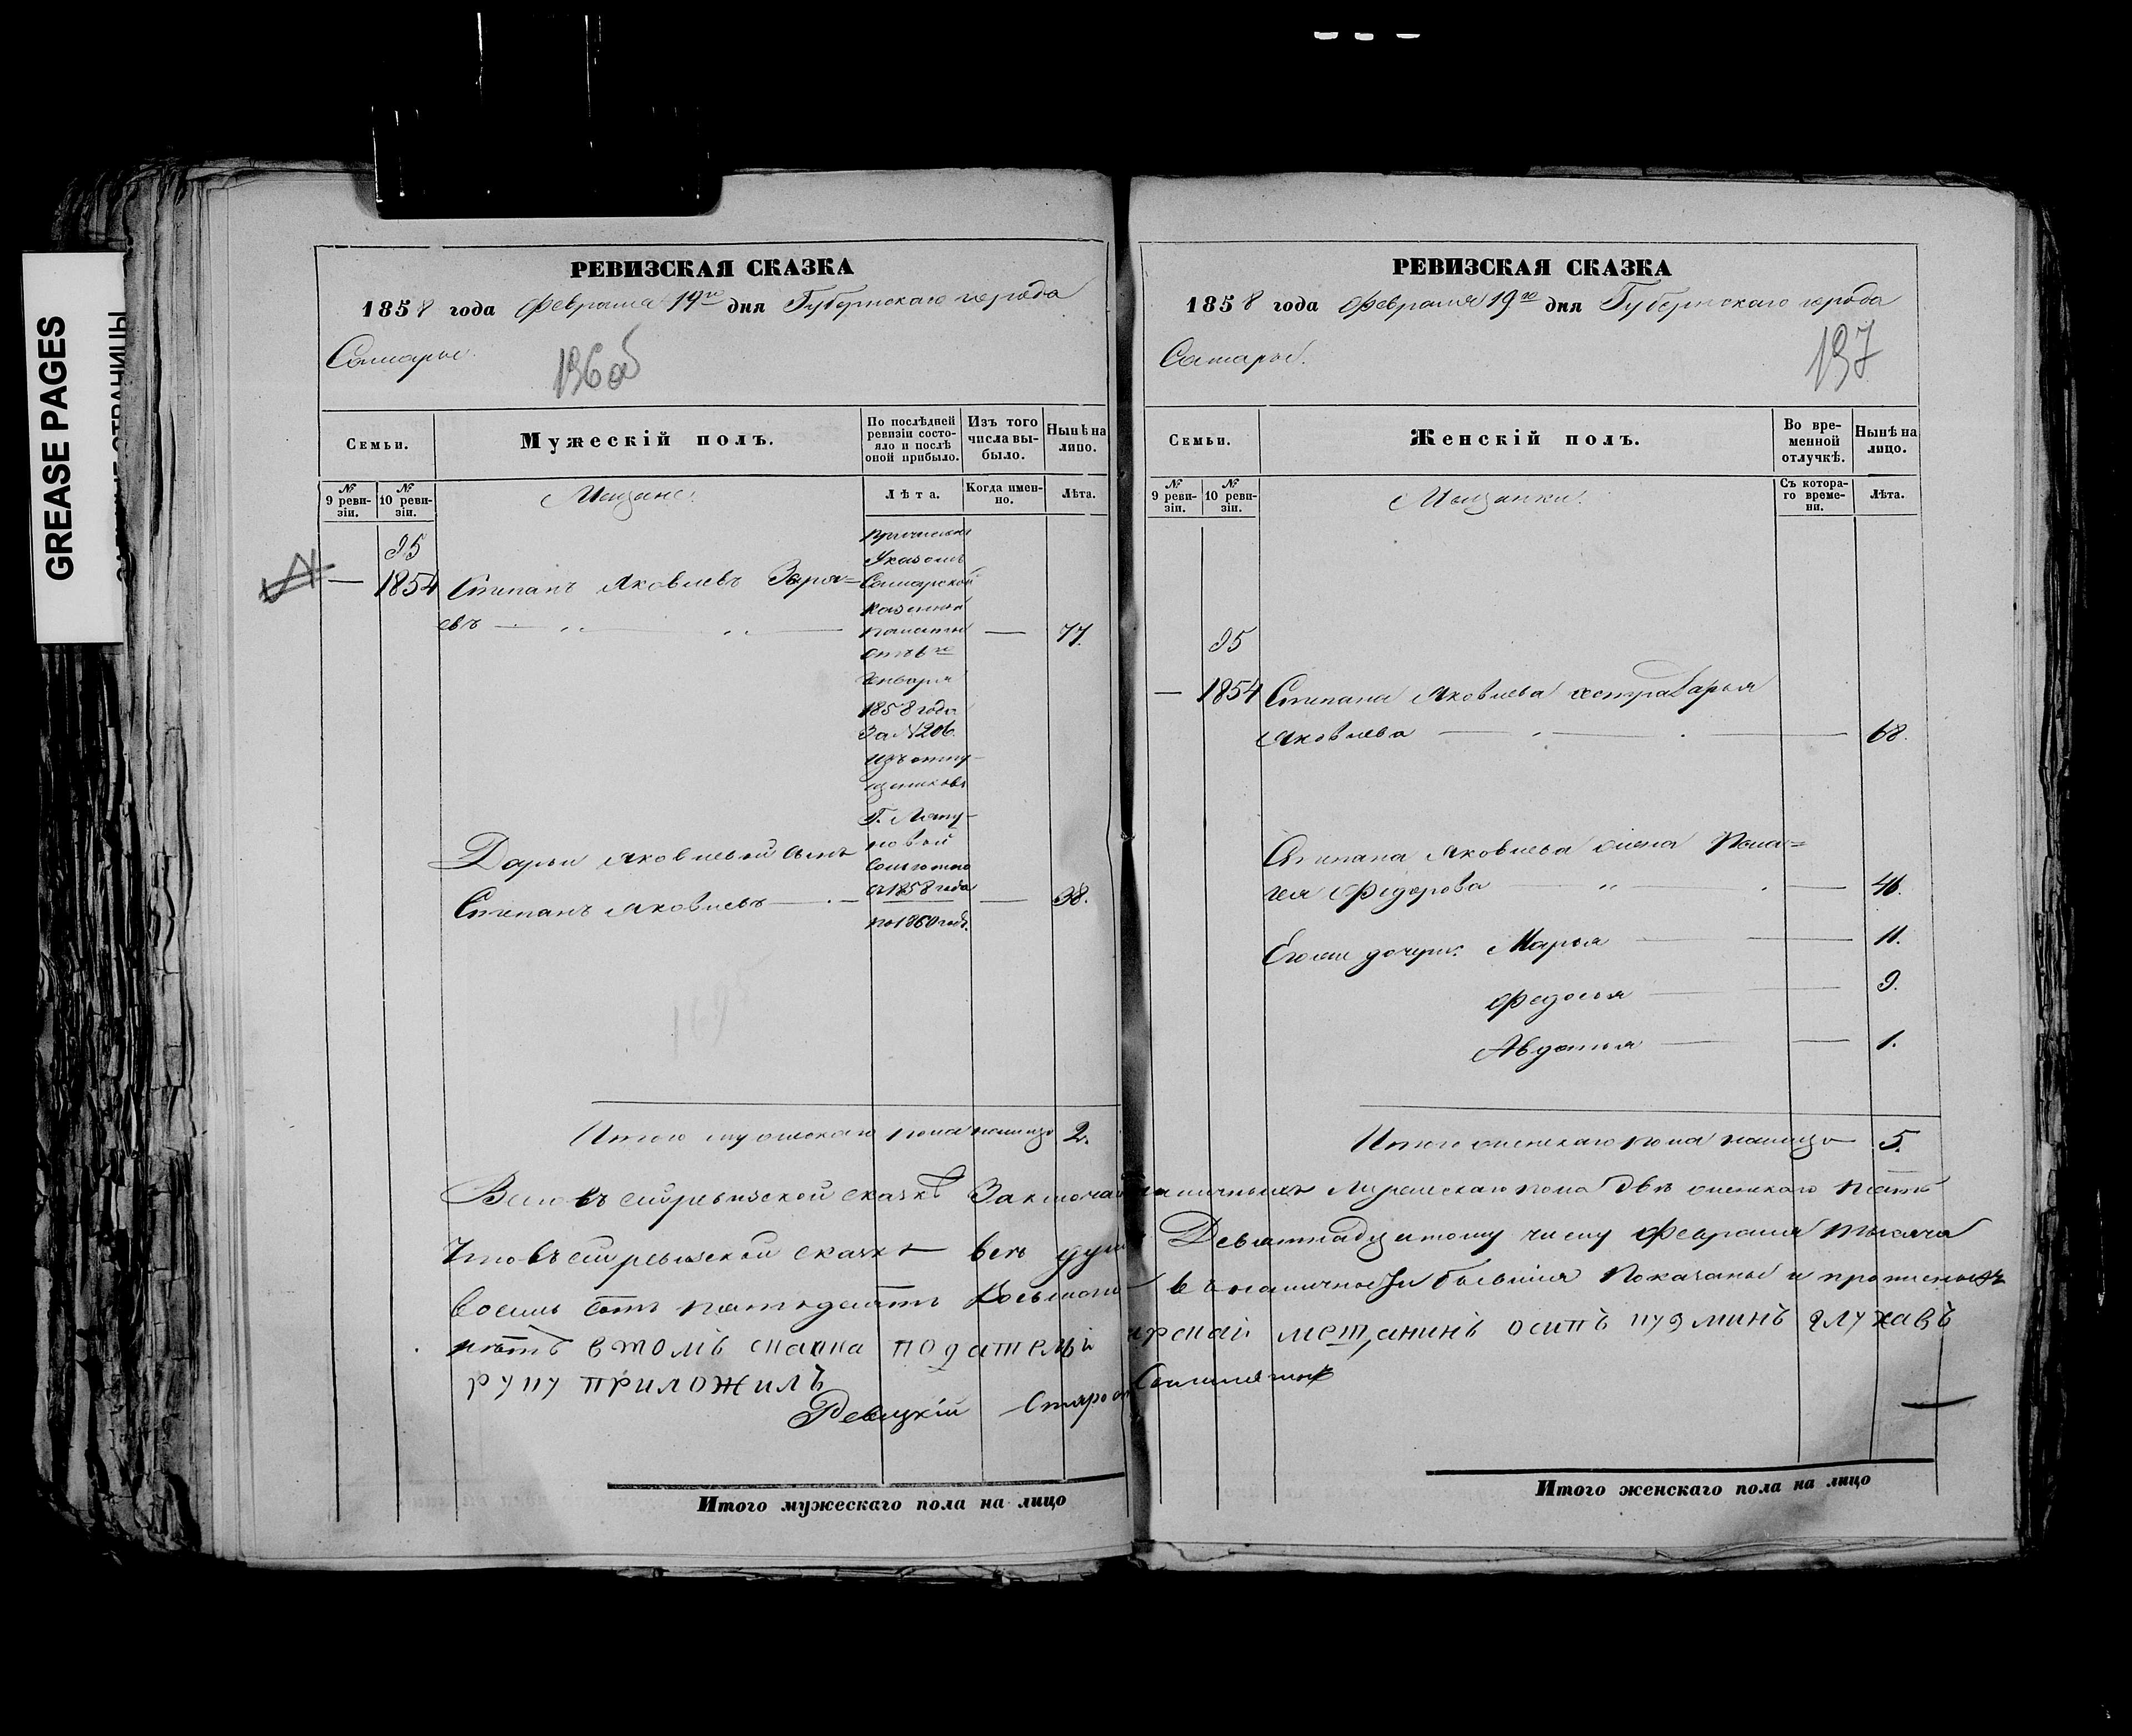 GREASE PAGES
РЕВИЗСКАЯ СКАЗКА
1858 года Февраля 19го дня Губернскаго города
Самары.
136 об
Семьи.
Мужескій полъ.
По послѣдней ревизіи состояло и послѣ оной прибыло.
Изъ того числа выбыло.
Нынѣ на лицо.
№ 9 ревизіи.
№ 10 ревизіи.
Мещане.
Лѣта.
Когда именно.
Лѣта.
95
— 1854 Степанъ Яковлевъ
евъ — — 77.
Причислен
Указомъ
Самарской
Казенной
палаты
отъ 6го
Января
1858 года
За №206.
изъ отпу-
щенниковъ
Г.
новой
Сольготою
съ 1858 года
по 1860 годъ.
Дарьи Яковлевой сынъ
Степанъ Яковлевъ — — 38.
Итого мужескаго пола налицо 2.
РЕВИЗСКАЯ СКАЗКА
1858 года Февраля 19го дня Губернскаго города
Самары.
137
Семьи.
Женскій полъ.
Во временной отлучкѣ.
Нынѣ на лицо.
№ 9 ревизіи.
№ 10 ревизіи.
Мещанки.
Съ котораго времени.
Лѣта.
95
— 1854 Степана Яковлева сестра Дарья
Яковлева — — 68.
Степана Яковлева жена Пела=
гея Федорова — — 41.
Его же дочери: Марья — 11.
Федосья — 9.
Авдотья — — 1.
Итого женскаго пола налицо 5.
Всего въ сей ревизской сказкѣ Заключай наличныхъ Мужескаго пола двѣ женскаго пять
Что въ сей ревизской сказкѣ всѣ души Девятнадцатому числу Февраля тысяча
Восемь сотъ пятьдесятъ Восьмого въ наличности бывшія Показаны и прописныхъ
нѣтъ втомъ сказка податель мещанинъ осипъ
руку приложилъ
Ревизкій Старо
Итого мужескаго пола на лицо
Итого женскаго пола на лицо